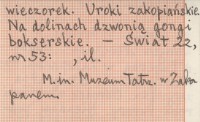 wieczorek. Uroki zakopiańskie.
Na dolinach dzwonią gongi
bokserskie. — Świat 22,
nr 53: , il.
M. in. Muzeum Tatrz. w Zako
panem.